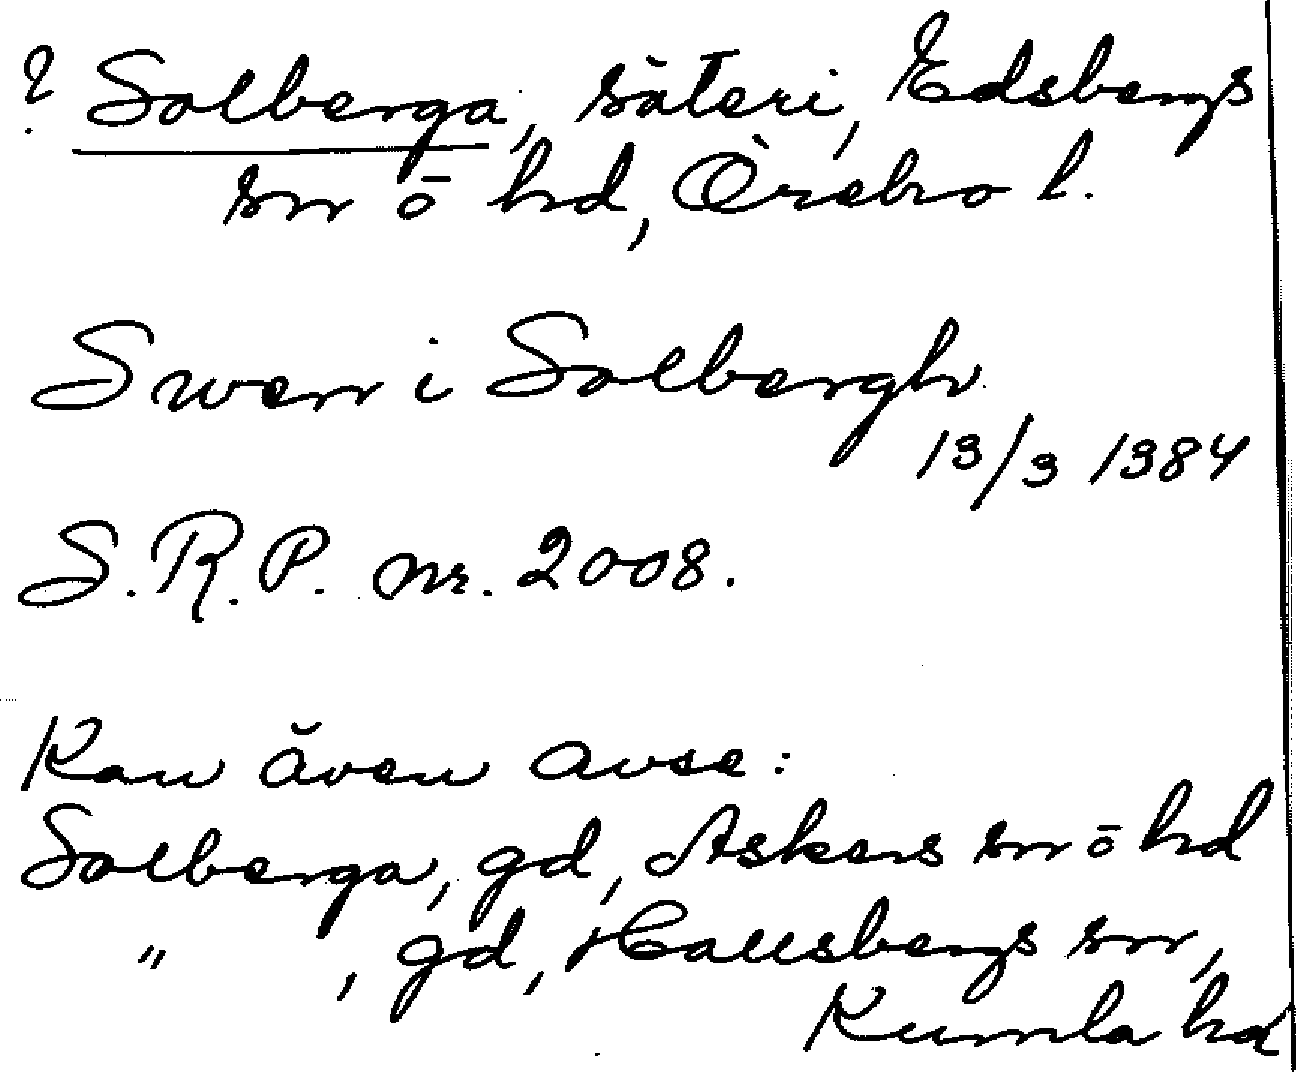 ? Solberga, säteri, Edsbergs
sn o hd, Örebro l.
Swen i Solbergh
13/3 1384
S.R.P. nr. 2008.
Kan även avse:
Solberga, gd, Askers sn o hd
" , gd, Hallsbergs sn,
Kumla hd